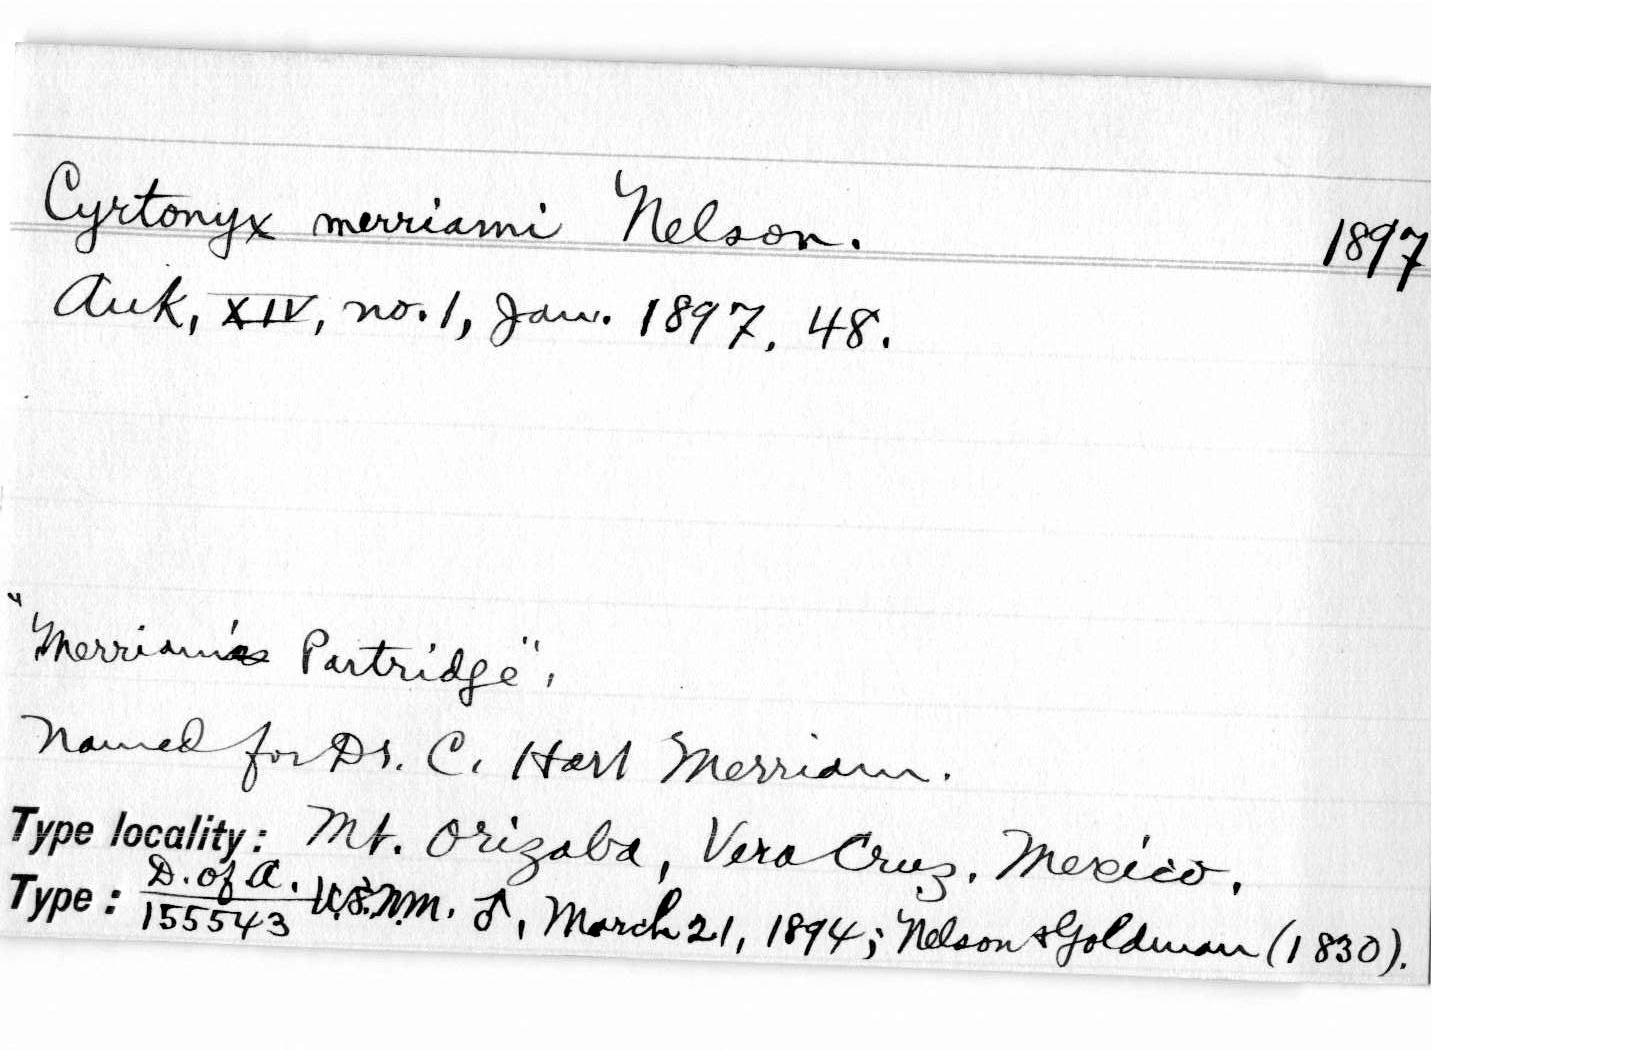 Cyrtonyx merriami Nelson. 1897
Auk, XIV, no. 1, Jan. 1897, 48.
"Merriam's Partridge".
Named for Dr. C. Hart Merriam.
Type locality: Mt. Orizaba, Vera Cruz, Mexico.
Type: D. of A. / 155543 U.S.N.M. ♂, March 21, 1894; Nelson & Goldman (1830).